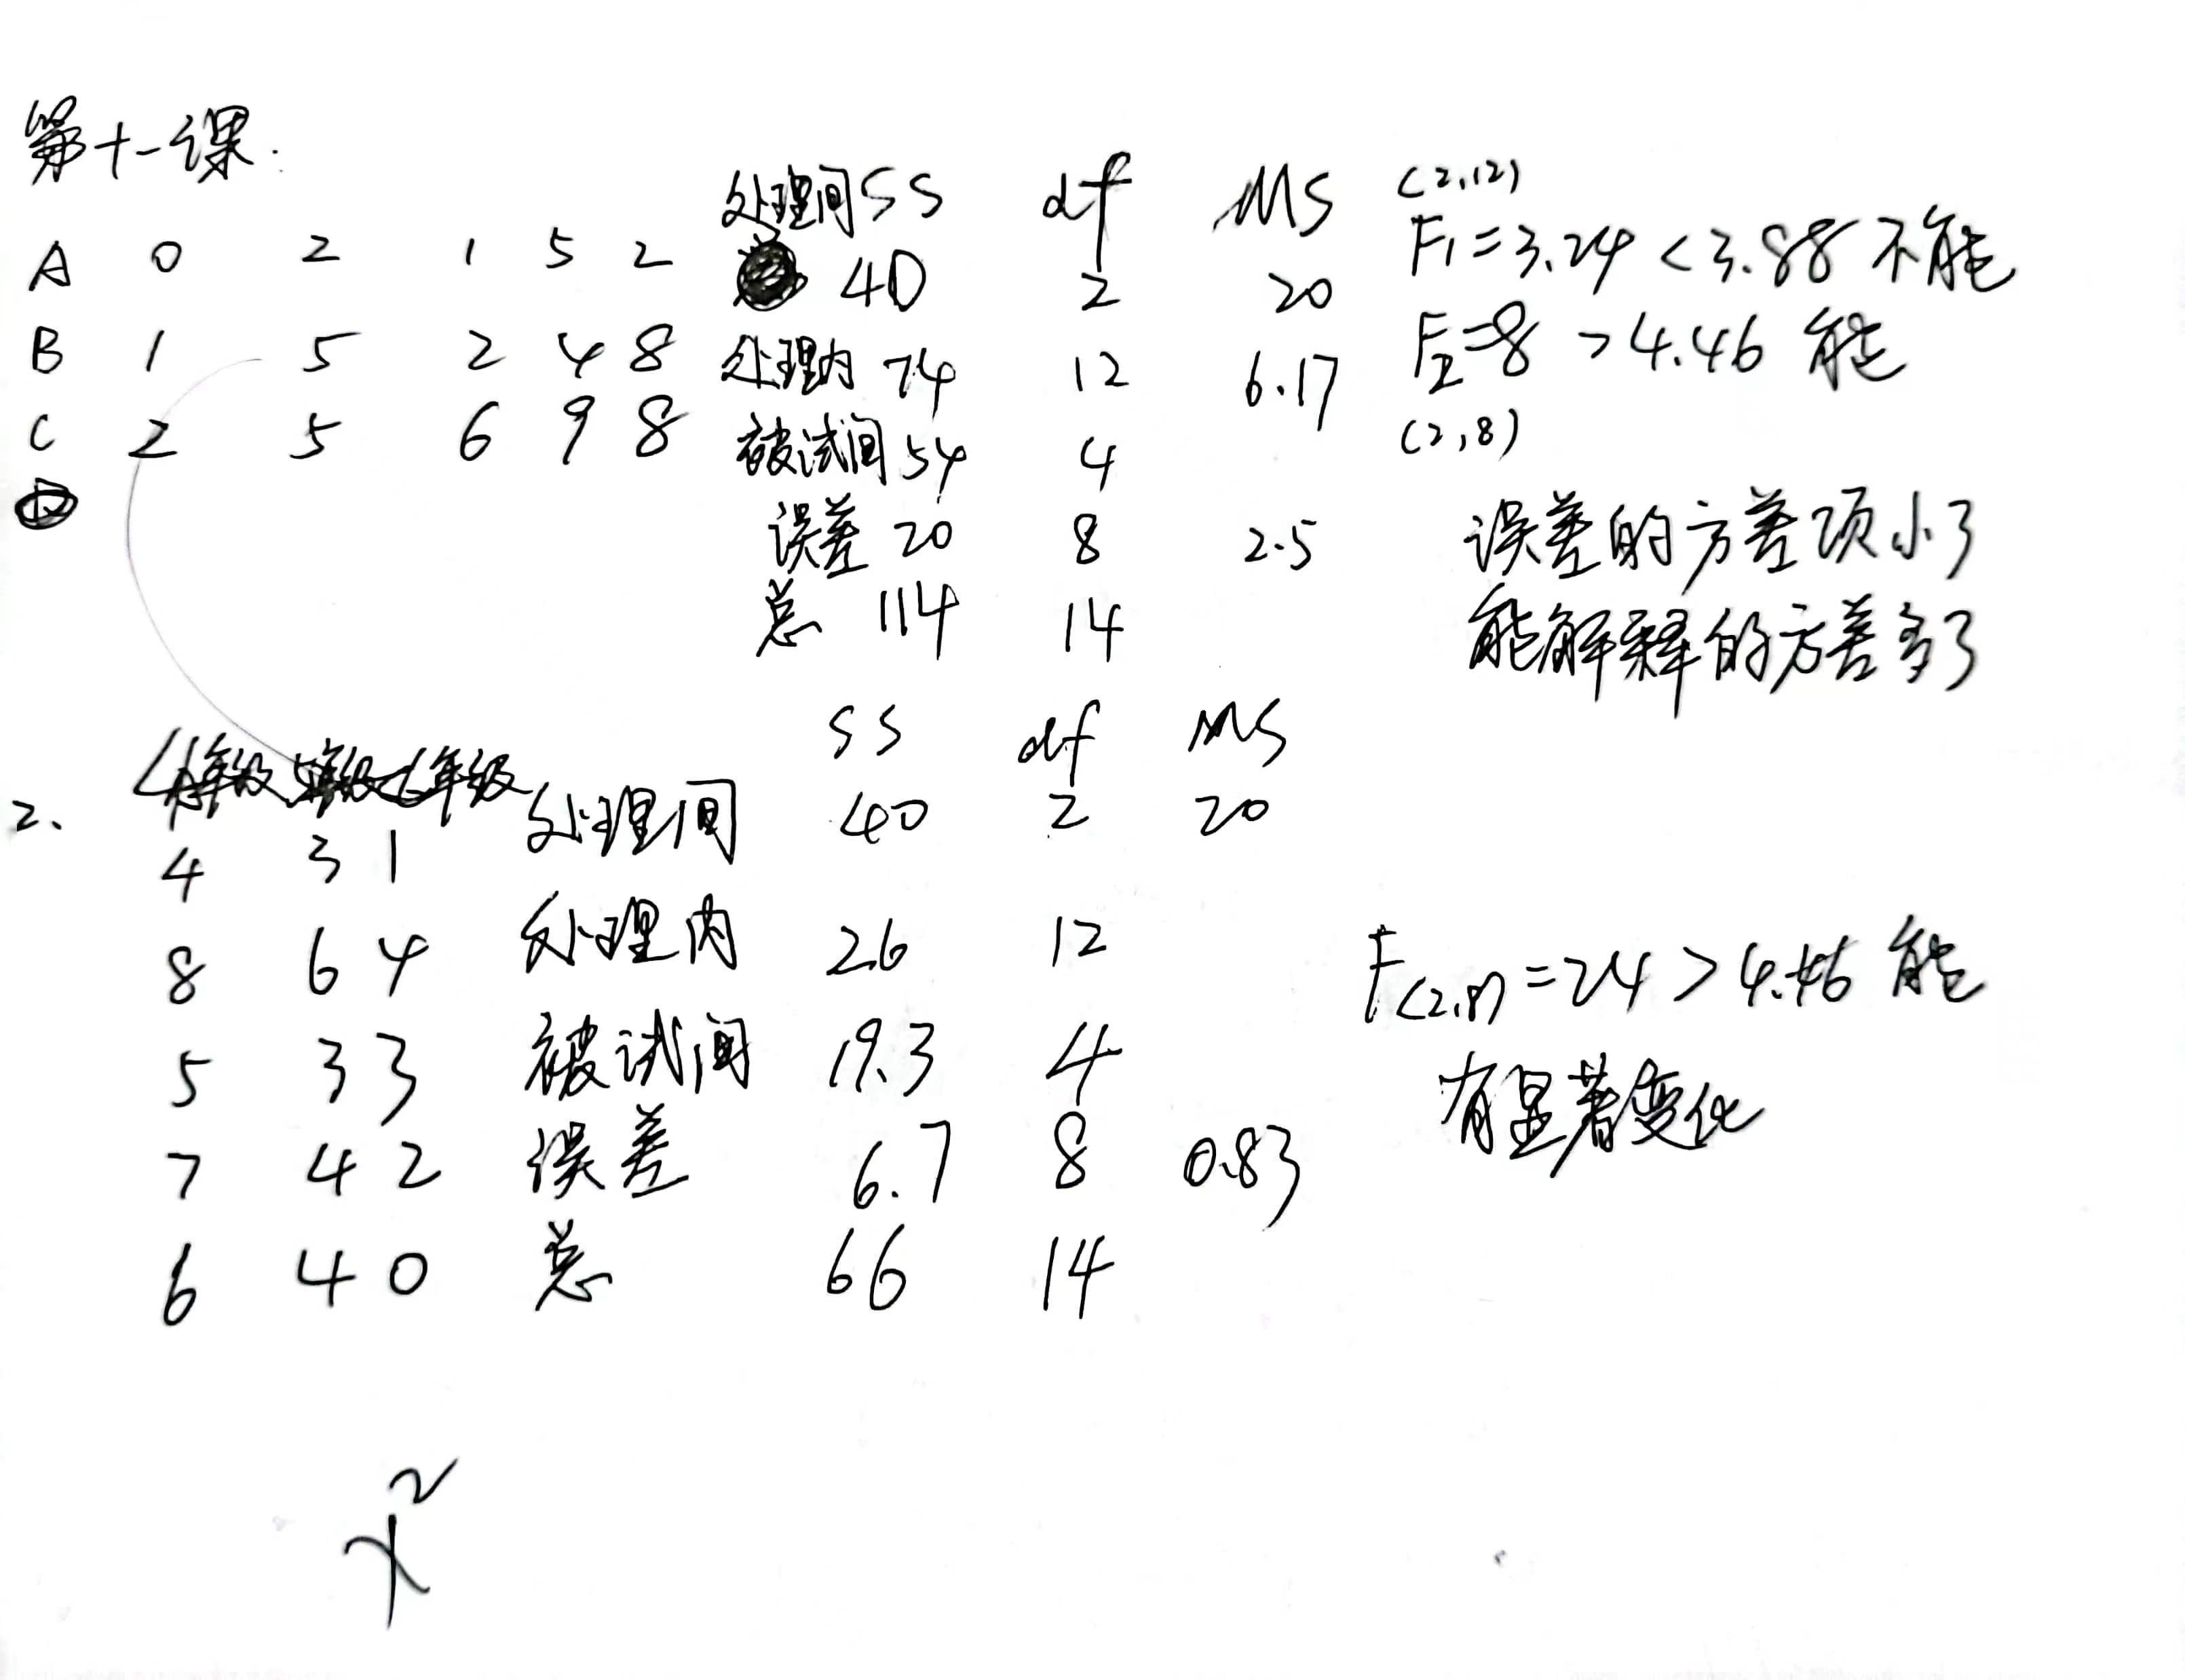 第十一课.
处理间 SS df MS (2,12)
A 0 2 1 5 2 40 2 20 F1=3.24<3.88 不能
B 1 5 2 4 8 处理内 74 12 6.17 F2=8 >4.46 能
C 2 5 6 9 8 被试间 54 4 (2,8)
误差 20 8 2.5 误差的方差项小了
总 114 14 能解释的方差多了
SS df MS
2. 处理间 40 2 20
4 3 1
8 6 4 处理内 26 12 F(2,8)=24>4.46 能
5 3 3 被试间 19.3 4 有显著变化
7 4 2 误差 6.7 8 0.83
6 4 0 总 66 14
χ²